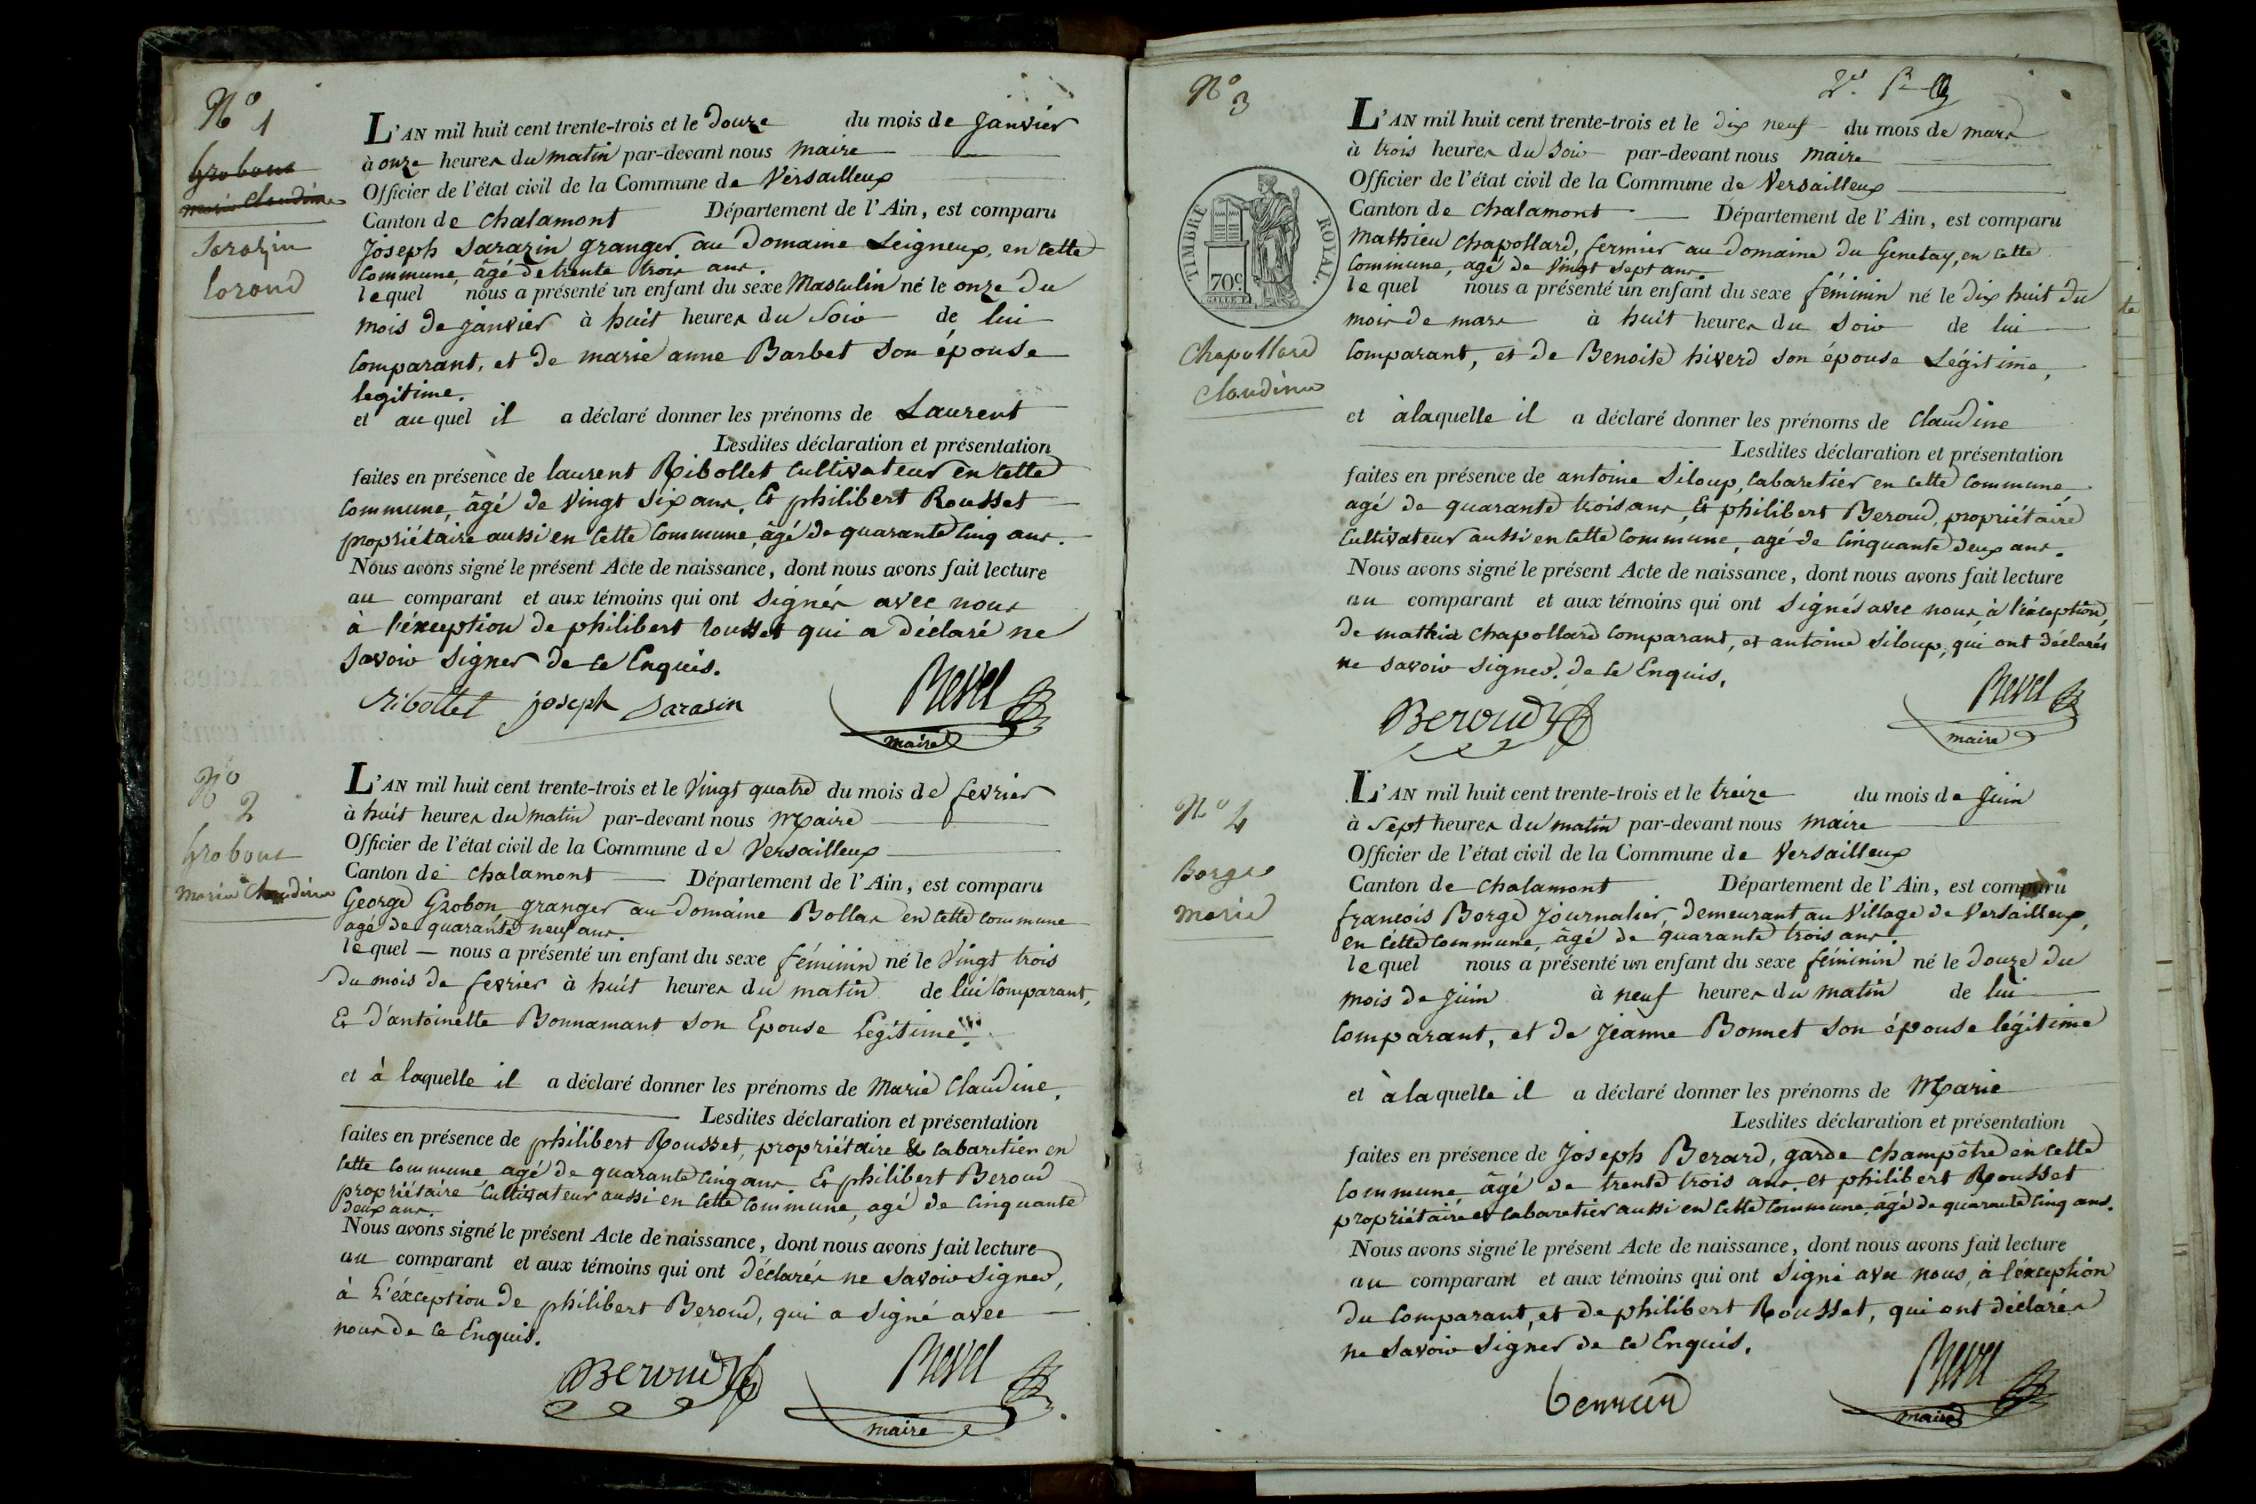 N° 1
Grobont
Marie Claudine
Sarazin
Lorand
L'AN mil huit cent trente-trois et le douze du mois de janvier
à onze heures du matin par-devant nous maire
Officier de l'état civil de la Commune de Versailleux
Canton de chalamont Département de l'Ain, est comparu
joseph sarazin granger au domaine Leigneux, en cette
commune, âgé de trente trois ans.
lequel nous a présenté un enfant du sexe Masculin né le onze du
mois de janvier à huit heures du soir de lui
comparant, et de marie anne Barbet son épouse
legitime.
et au quel il a déclaré donner les prénoms de Laurent
Lesdites déclaration et présentation
faites en présence de laurent Ribollet cultivateur en cette
commune, âgé de vingt six ans, Et philibert Rousset
propriétaire aussi en cette commune, âgé de quarante cinq ans.
Nous avons signé le présent Acte de naissance, dont nous avons fait lecture
au comparant et aux témoins qui ont signés avec nous
à l'éxception de philibert rousset qui a déclaré ne
savoir signer de ce Enquis.
Ribollet joseph sarasin Revel
maire
N° 2
Grobont
Marie Claudine
L'AN mil huit cent trente-trois et le vingt quatre du mois de fevrier
à huit heures du matin par-devant nous Maire
Officier de l'état civil de la Commune de Versailleux
Canton de chalamont Département de l'Ain, est comparu
George Grobon granger au domaine Bollas en cette commune
agé de quarante neuf ans.
lequel nous a présenté un enfant du sexe féminin né le vingt trois
du mois de fevrier à huit heures du matin de lui comparant,
Et d'antoinette Bonnamant son Epouse Legitime.
et à laquelle il a déclaré donner les prénoms de Marie Claudine.
Lesdites déclaration et présentation
faites en présence de philibert Rousset, propriétaire & cabaretier en
cette commune, agé de quarante cinq ans Et philibert Beroud
propriétaire cultivateur aussi en cette commune, agé de cinquante
deux ans.
Nous avons signé le présent Acte de naissance, dont nous avons fait lecture
au comparant et aux témoins qui ont déclarés ne savoir signer,
à L'éxception de philibert Beroud, qui a signé avec
nous de ce Enquis.
Beroud Revel
maire
N° 3
TIMBRE ROYAL.
70c
Chapollard
Claudine
L'AN mil huit cent trente-trois et le dix neuf du mois de mars
à trois heures du soir par-devant nous maire
Officier de l'état civil de la Commune de Versailleux
Canton de chalamont Département de l'Ain, est comparu
Mathieu chapollard, fermier au domaine du Genetay, en cette
commune, agé de vingt sept ans.
lequel nous a présenté un enfant du sexe féminin né le dix huit du
mois de mars à huit heures du soir de lui
comparant, et de Benoite hiverd son épouse Légitime,
et à laquelle il a déclaré donner les prénoms de Claudine
Lesdites déclaration et présentation
faites en présence de antoine Siloup, cabaretier en cette commune
agé de quarante trois ans, Et philibert Beroud, propriétaire
cultivateur aussi en cette commune, agé de cinquante deux ans.
Nous avons signé le présent Acte de naissance, dont nous avons fait lecture
au comparant et aux témoins qui ont signés avec nous, à l'éxception,
de mathia chapollard comparant, et antoine siloup, qui ont déclarés
ne savoir signer. de ce Enquis.
Beroud Revel
maire
N° 4
Borge
Marie
L'AN mil huit cent trente-trois et le treize du mois de juin
à sept heures du matin par-devant nous maire
Officier de l'état civil de la Commune de Versailleux
Canton de chalamont Département de l'Ain, est comparu
françois Borge journalier, demeurant au village de Versailleux,
en cette commune, âgé de quarante trois ans.
lequel nous a présenté un enfant du sexe féminin né le douze du
mois de juin à neuf heures du matin de lui
comparant, et de jeanne Bonnet son épouse légitime
et à laquelle il a déclaré donner les prénoms de Marie
Lesdites déclaration et présentation
faites en présence de Joseph Berard, garde champêtre en cette
commune, âgé de trente trois ans, et philibert Rousset
propriétaire et cabaretier aussi en cette commune, âgé de quarante cinq ans.
Nous avons signé le présent Acte de naissance, dont nous avons fait lecture
au comparant et aux témoins qui ont signé avec nous, à l'éxception
du comparant, et de philibert Rousset, qui ont déclarés
ne savoir signer de ce Enquis.
Revel
maire